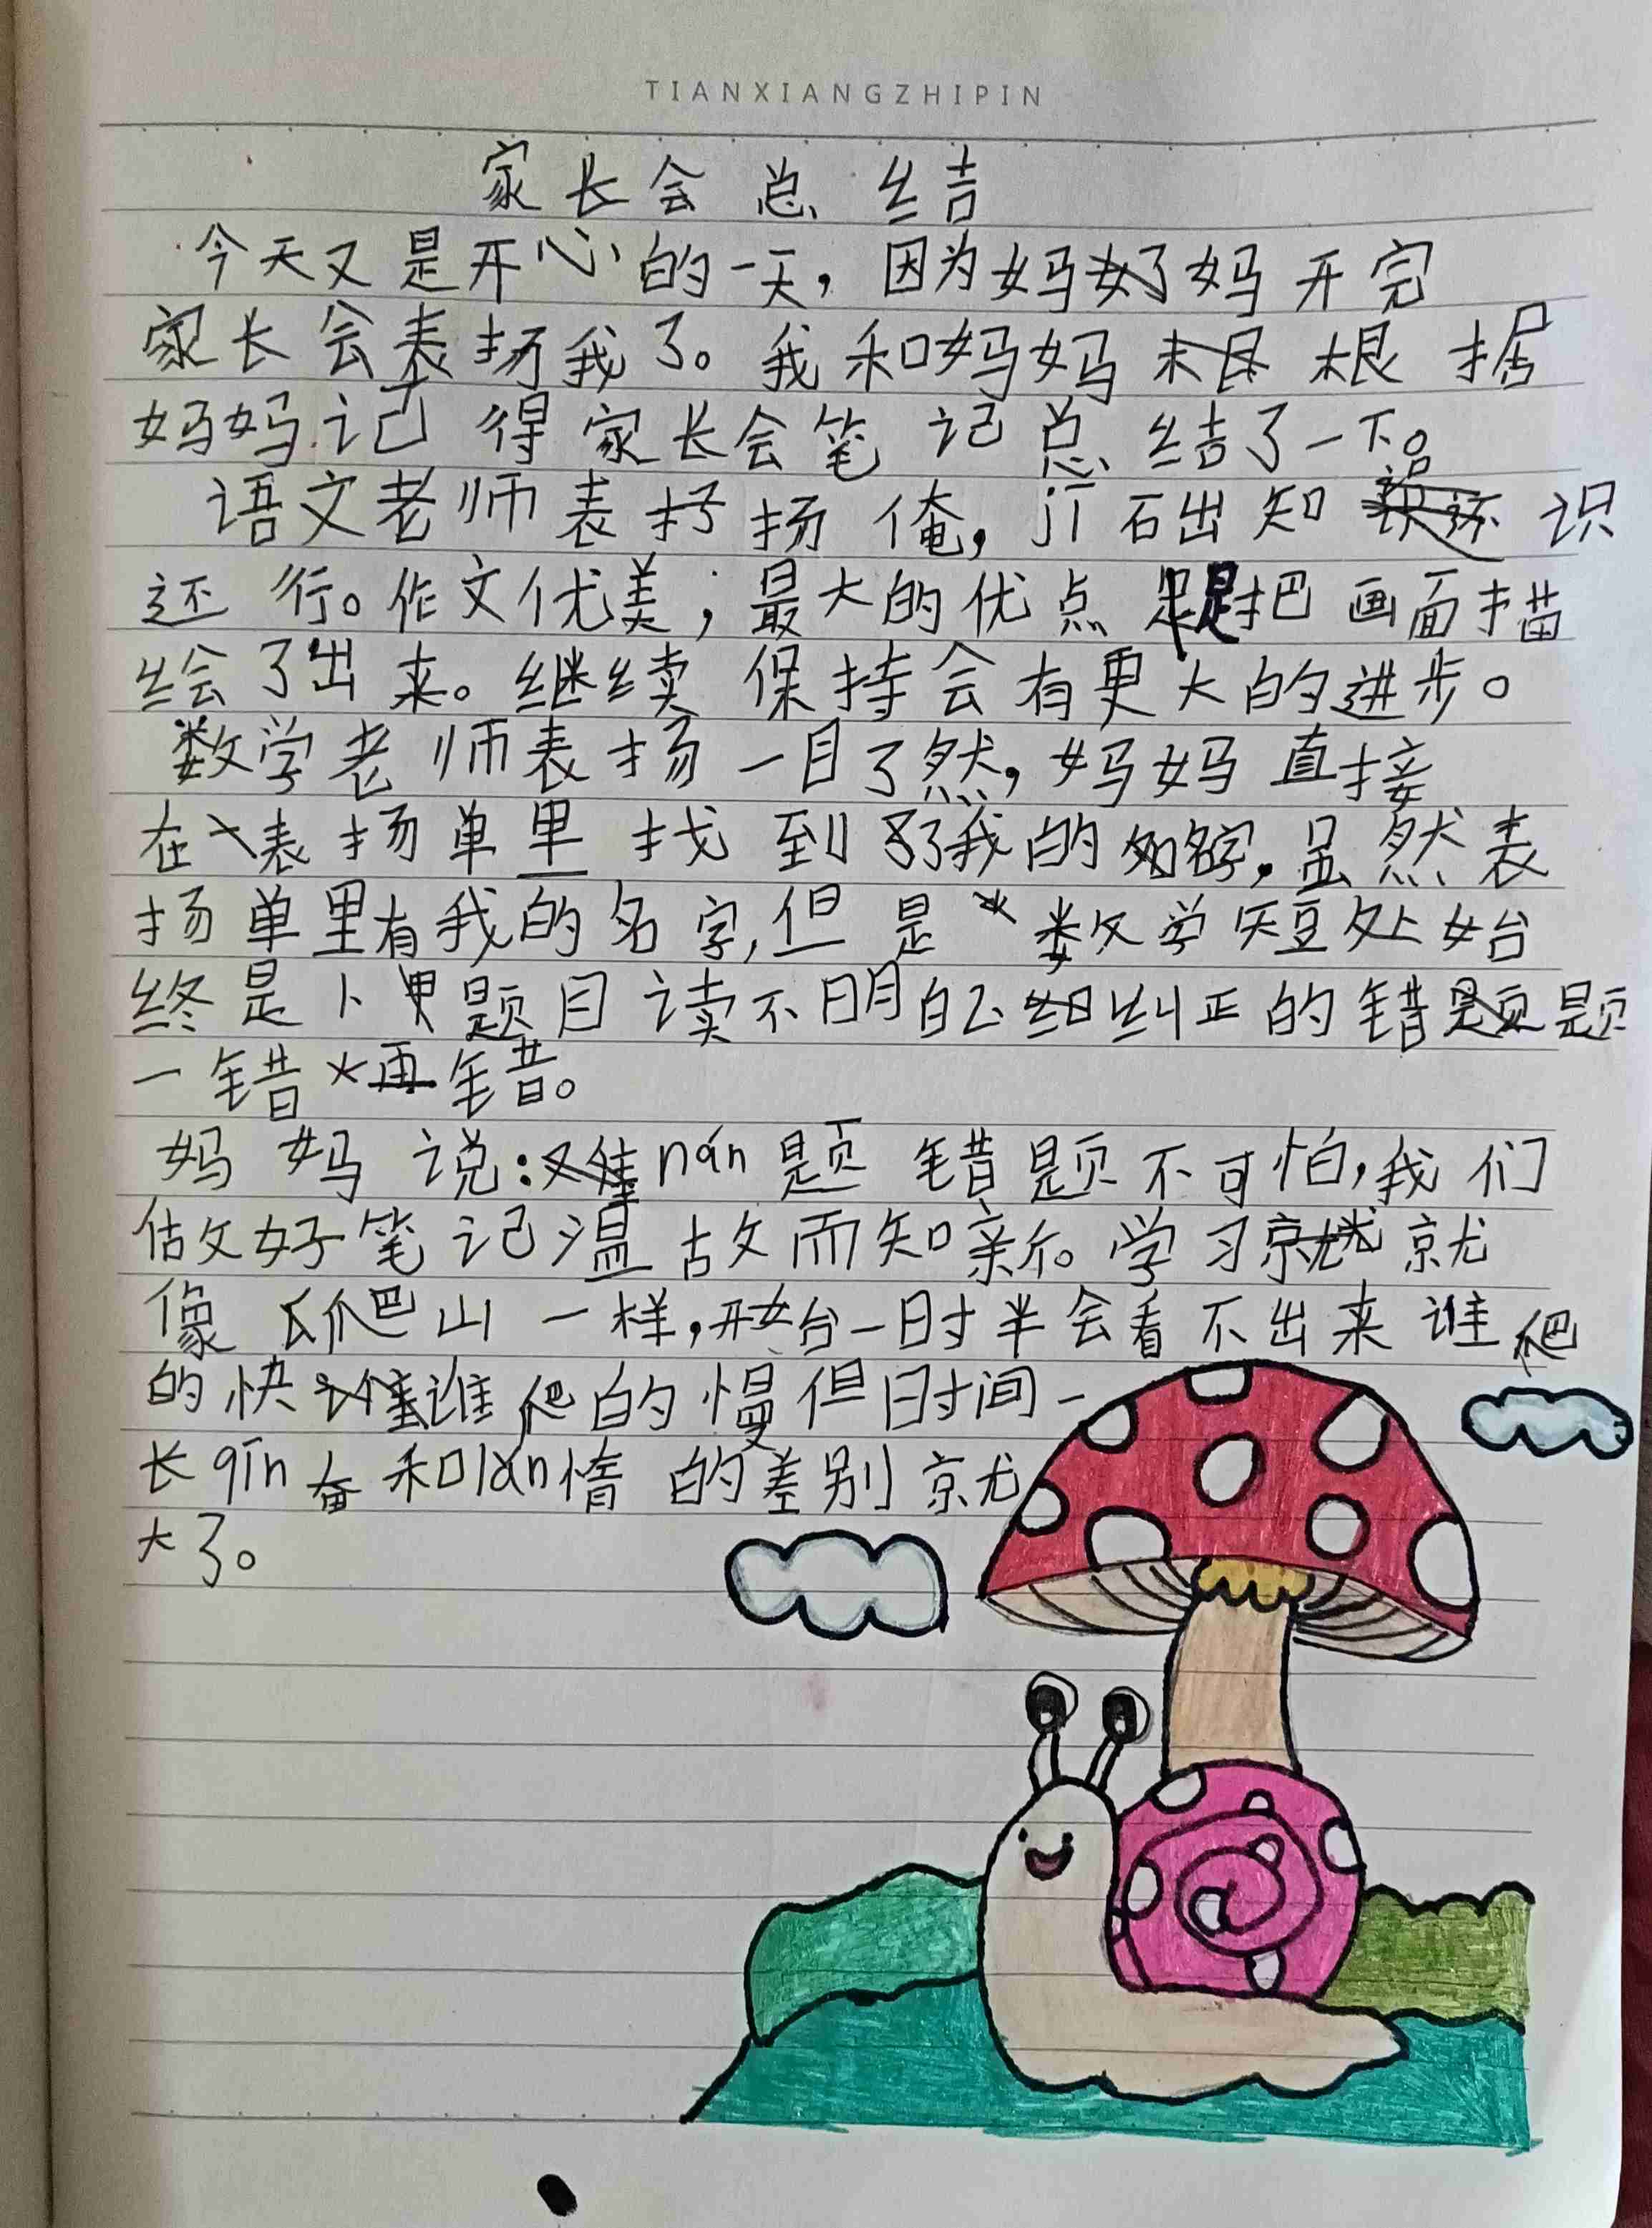 TIANXIANGZHIPIN
家长会总结
今天又是开心的一天，因为妈妈开完
家长会表扬我了。我和妈妈根据
妈妈记得家长会笔记总结了一下。
语文老师表扬俺，jī础知识
还行。作文优美，最大的优点是把画面描
绘了出来。继续保持会有更大的进步。
数学老师表扬一目了然，妈妈直接
在表扬单里找到了我的名字，虽然表
扬单里有我的名字，但是数学短处始
终是题目读不明白纠正的错题
一错再错。
妈妈说：nán题错题不可怕，我们
做好笔记温故而知新。学习就
像爬山一样，开始一时半会看不出来谁爬
的快谁爬的慢但时间一
长qín奋和lǎn惰的差别就
大了。